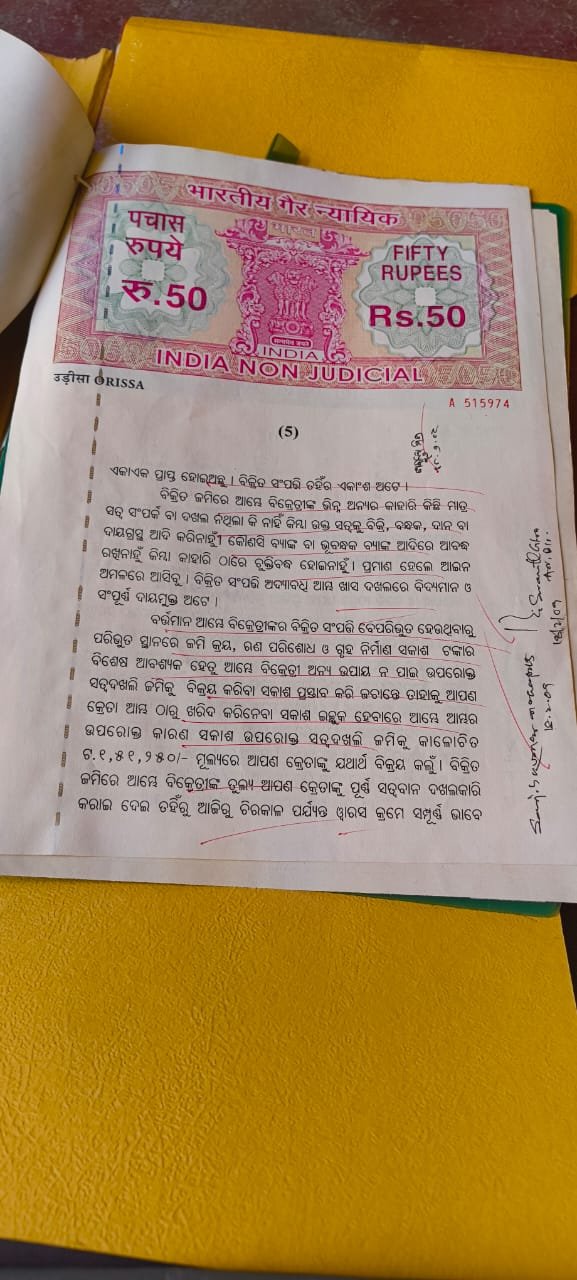 भारतीय गैर न्यायिक
भारत
पचास
रुपये
रु.50
FIFTY
RUPEES
Rs.50
सत्यमेव जयते
INDIA
INDIA NON JUDICIAL
उड़ीसा ORISSA
A 515974
(5)
ଏକାଏକ ପ୍ରାପ୍ତ ହୋଇଅଛୁ । ବିକ୍ରିତ ସଂପତ୍ତି ତହିଁର ଏକାଂଶ ଅଟେ ।
ବିକ୍ରିତ ଜମିରେ ଆମ୍ଭେ ବିକ୍ରେତୀଙ୍କ ଭିନ୍ନ ଅନ୍ୟର କାହାରି କିଛି ମାତ୍ର
ସତ୍ବ ସଂପର୍କ ବା ଦଖଲ ନଥିଲା କି ନାହିଁ କିମ୍ବା ଉକ୍ତ ସତ୍ବକୁ ବିକ୍ରି, ବନ୍ଧକ, ଦାନ ବା
ଦାୟଗ୍ରସ୍ଥ ଆଦି କରିନାହୁଁ । କୌଣସି ବ୍ୟାଙ୍କ ବା ଭୂବନ୍ଧକ ବ୍ୟାଙ୍କ ଆଦିରେ ଆବଦ୍ଧ
ରଖିନାହୁଁ କିମ୍ବା କାହାରି ଠାରେ ଚୁକ୍ତିବଦ୍ଧ ହୋଇନାହୁଁ । ପ୍ରମାଣ ହେଲେ ଆଇନ
ଅମଳରେ ଆସିବୁ । ବିକ୍ରିତ ସଂପତ୍ତି ଅଦ୍ୟାବଧି ଆମ୍ଭ ଖାସ ଦଖଲରେ ବିଦ୍ୟମାନ ଓ
ସଂପୂର୍ଣ୍ଣ ଦାୟମୁକ୍ତ ଅଟେ ।
ବର୍ତ୍ତମାନ ଆମ୍ଭେ ବିକ୍ରେତୀଙ୍କର ବିକ୍ରିତ ସଂପତ୍ତି ବେପରିଭୁତ ହେଉଥିବାରୁ
ପରିଭୁତ ସ୍ଥାନରେ ଜମି କ୍ରୟ, ରଣ ପରିଶୋଧ ଓ ଗୃହ ନିର୍ମାଣ ସକାଶ ଟଙ୍କାର
ବିଶେଷ ଆବଶ୍ୟକ ହେତୁ ଆମ୍ଭେ ବିକ୍ରେତୀ ଅନ୍ୟ ଉପାୟ ନ ପାଇ ଉପରୋକ୍ତ
ସତ୍ବଦଖଲି ଜମିକୁ ବିକ୍ରୟ କରିବା ସକାଶ ପ୍ରସ୍ତାବ କରି ଜଚାନ୍ତେ ତାହାକୁ ଆପଣ
କ୍ରେତା ଆମ୍ଭ ଠାରୁ ଖରିଦ କରିନେବା ସକାଶ ଇଚ୍ଛୁକ ହେବାରେ ଆମ୍ଭେ ଆମ୍ଭର
ଉପରୋକ୍ତ କାରଣ ସକାଶ ଉପରୋକ୍ତ ସତ୍ବଦଖଲି ଜମିକୁ କାଳୋଚିତ
ଟ.୧,୫୧,୨୫୦/- ମୂଲ୍ୟରେ ଆପଣ କ୍ରେତାଙ୍କୁ ଯଥାର୍ଥ ବିକ୍ରୟ କଲୁଁ । ବିକ୍ରିତ
ଜମିରେ ଆମ୍ଭେ ବିକ୍ରେତୀଙ୍କ ତୁଲ୍ୟ ଆପଣ କ୍ରେତାଙ୍କୁ ପୂର୍ଣ୍ଣ ସତ୍ବବାନ ଦଖଲକାରି
କରାଇ ଦେଇ ତହିଁରୁ ଆଜିରୁ ଚିରକାଳ ପର୍ଯ୍ୟନ୍ତ ୱାରସ କ୍ରମେ ସମ୍ପୂର୍ଣ୍ଣ ଭାବେ